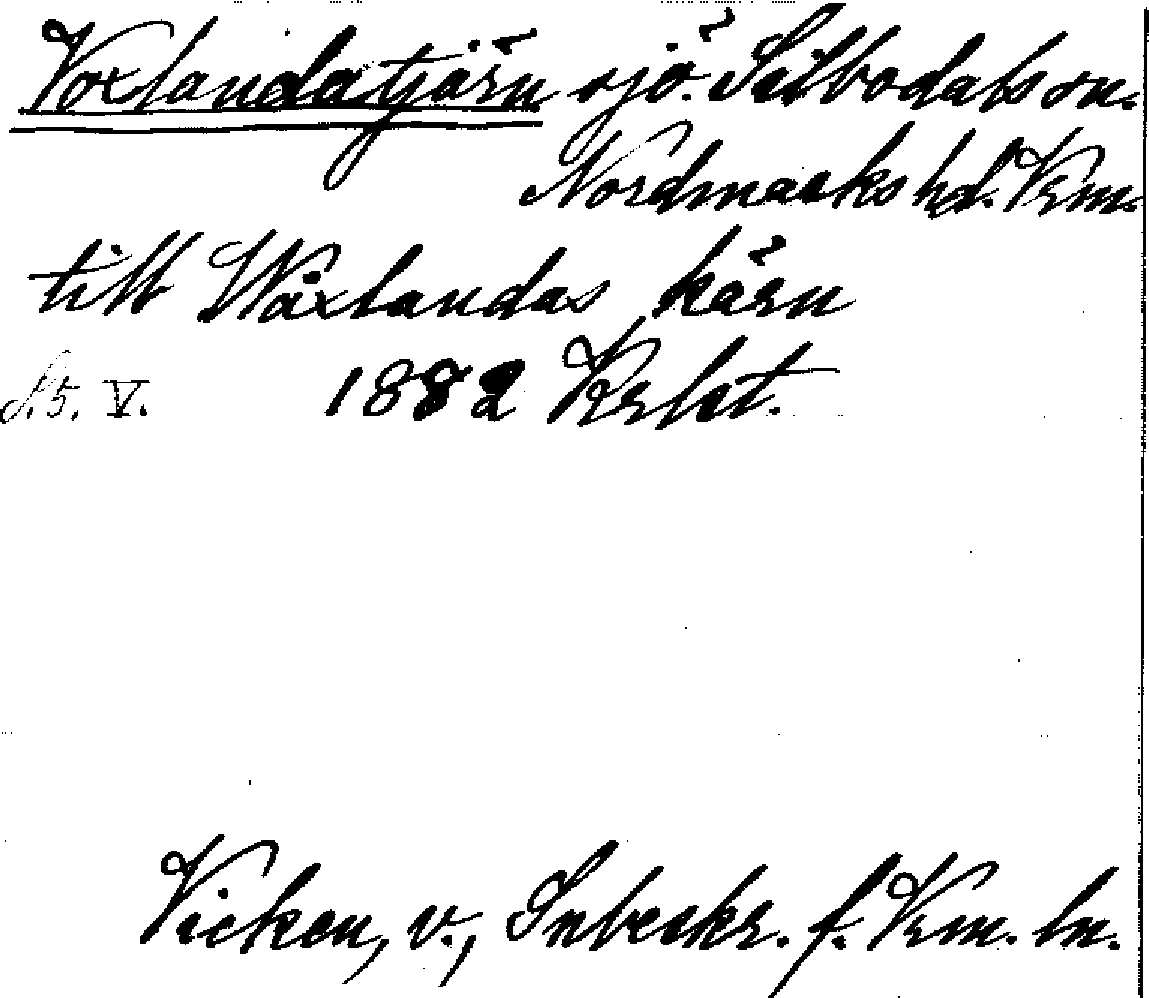 Voxlandatjärn sjö. Silbodals sn.
Nordmarks hd. Vrm.
till Wåxlandas kärn
d. 5. V. 1882 Krlst.
Vicken, v., Snbeskr. f. Vrm. ln.